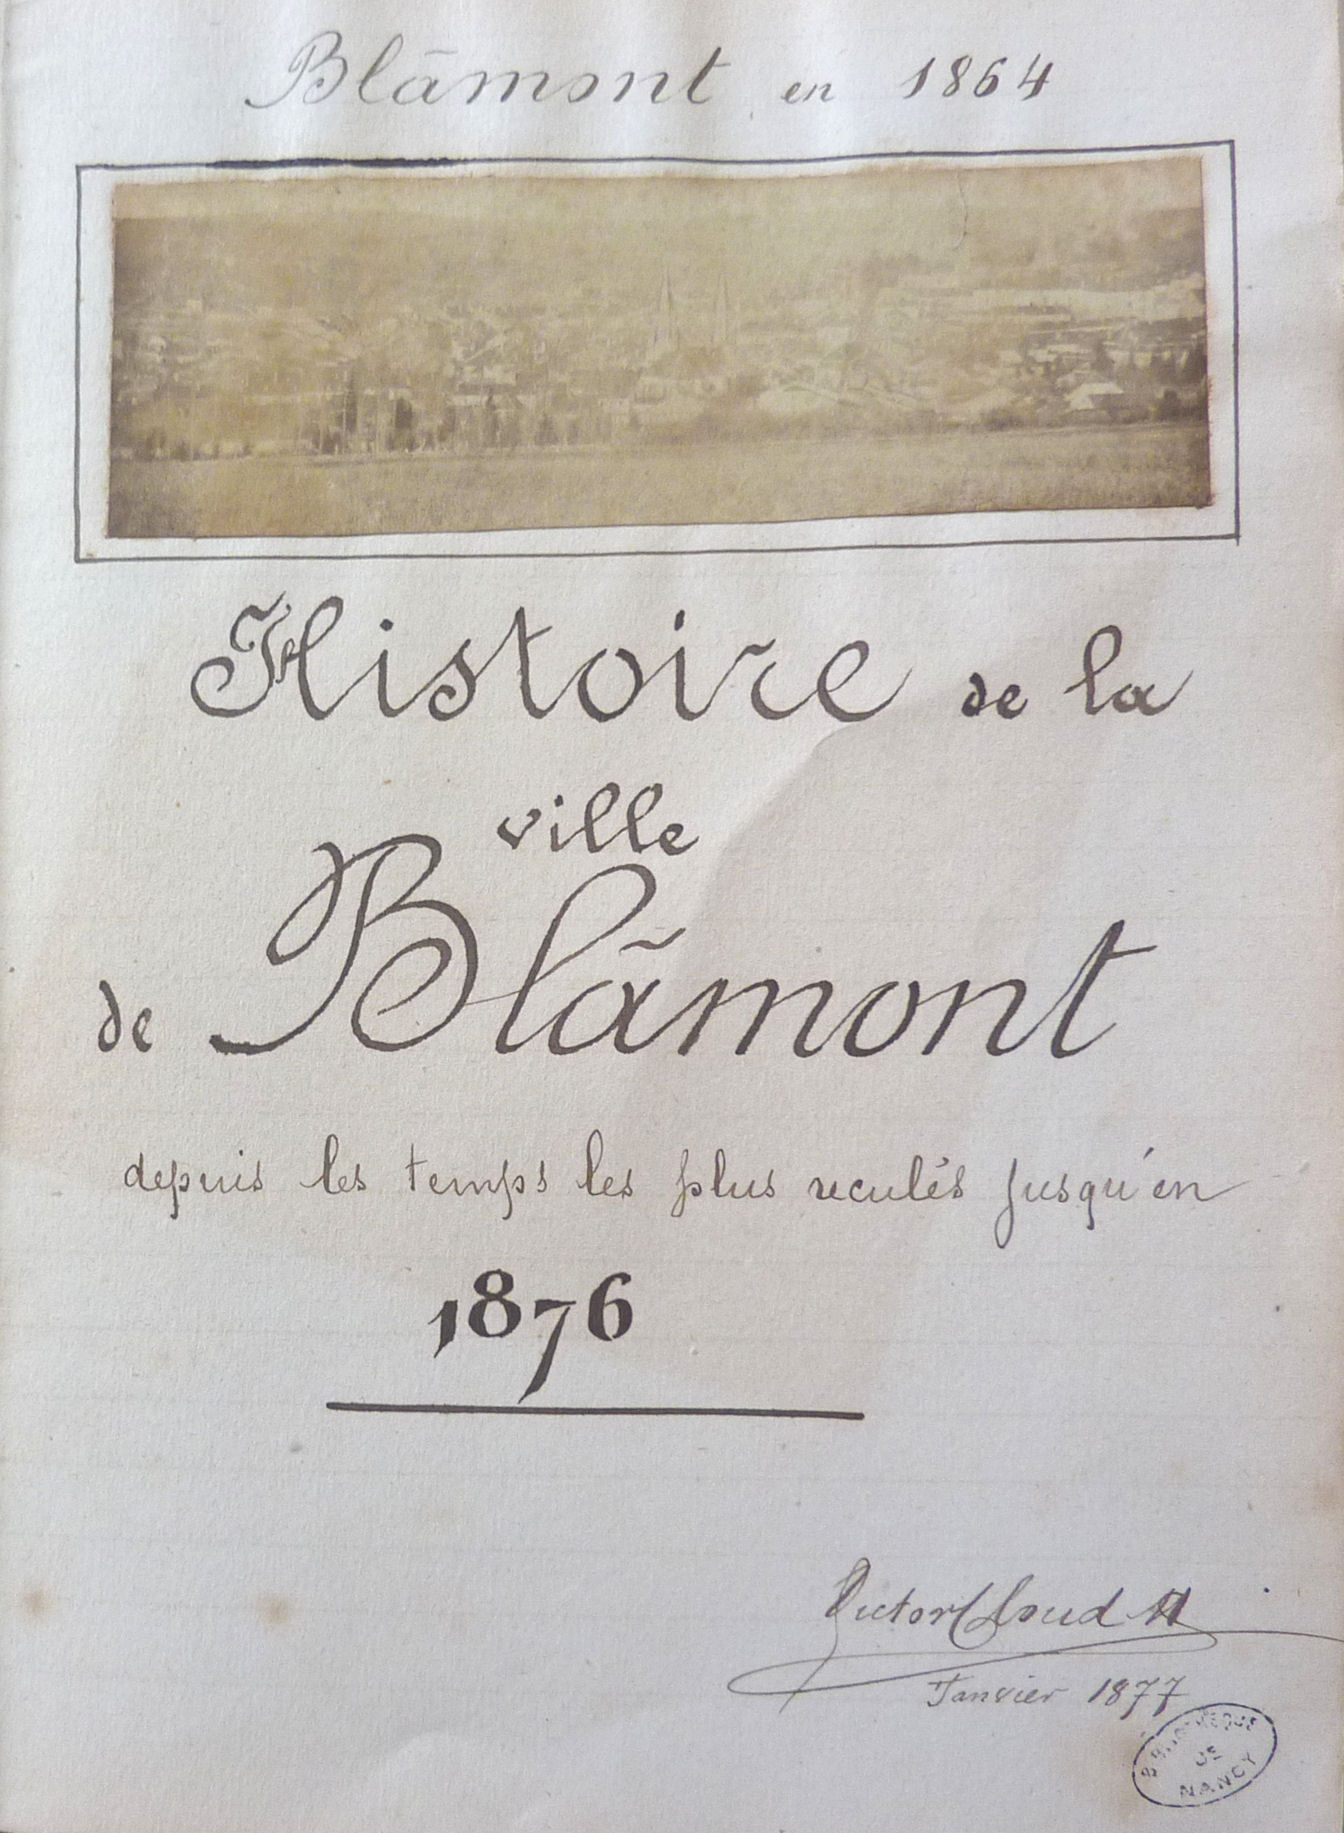 Blâmont en 1864
Histoire de la
ville
de Blâmont
depuis les temps les plus reculés jusqu'en
1876
Victor
Janvier 1877
BIBLIOTHEQUE
DE
NANCY